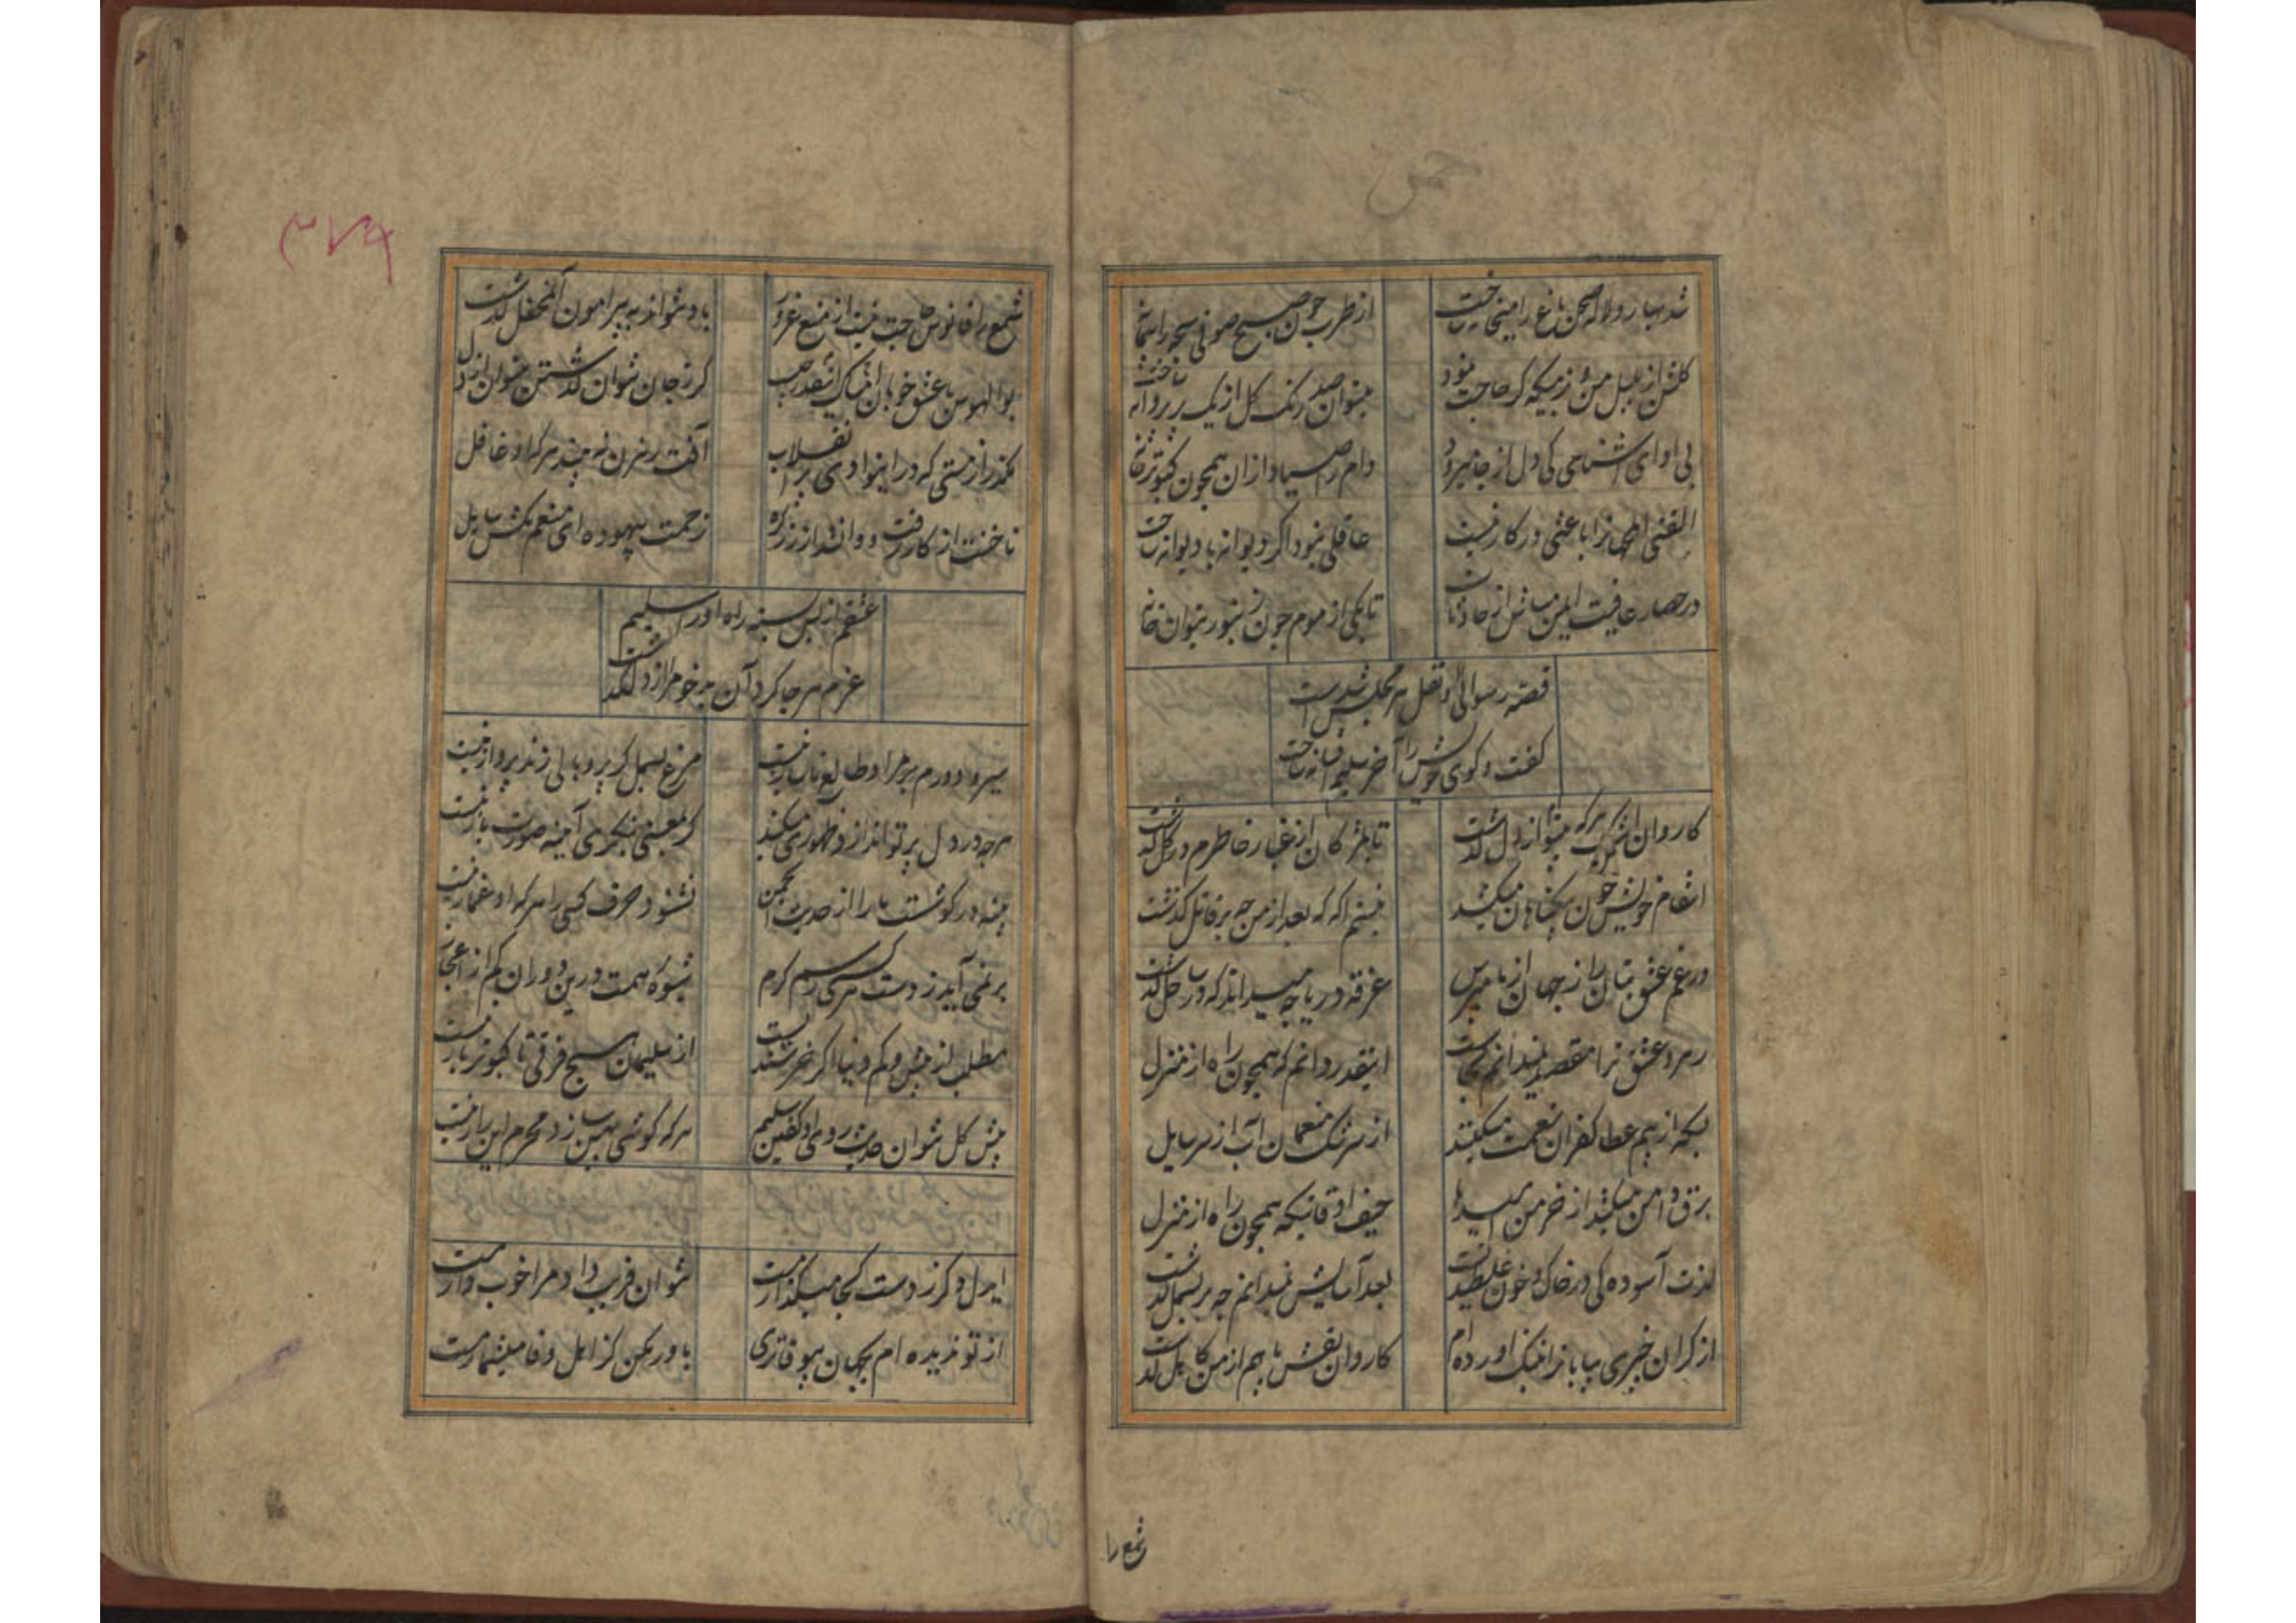 شد بهار و لاله صحن باغ را میخانه ساخت
از طرب چون صبح صوفی سبحه را پیمانه ساخت
گلشن از بلبل من زبسکه گر حاجت نبود
میتوان صد رنگ گل از یک پر پروانه ساخت
بی ادای آشنایی کی دل از جا میرود
دام را صیاد از آن همچون کبوترخانه ساخت
الفتی اهل را با عشق در کار نیست
عاقلی نبود اگر دیوانه با دیوانه ساخت
در حصار عافیت ایمن مباش از حادثات
تا بکی از موم چون زنبور بتوان خانه
قصه رسوایی او نقل هر مجلس شدست
گفت و کوی خویش را آخر سلیم افسانه ساخت
کاروان اشک هرکه میتواز دل گذشت
تا بمژگان از غبار خاطرم در گل گذشت
انتقام خویش خون بیکناهان میکشد
نیستم آکه که بعد از من چه بر قاتل کذشت
در غم عشق بتان را ز جهان از ما مپرس
غرقه دریا چه میداند که در ساحل گذشت
رهرو عشق ترا مقصد نمیدانم کجاست
اینقدر دانم که همچون راه از منزل
بسکه از بیم عطا کفران نعمت میکنند
از سرشک منعمان آب از سر سایل
برق دامن میکشد از خرمن امیدها
حیف اوقاتیکه همچون راه از منزل
لذت آسوده کی در خاک و خون غلطیدنست
بعد آسایش نمیدانم چه بر بسمل گذشت
از گران خیزی بیابانرا بتنک آورده ام
کاروان نقش پا هم از من کاهل گذشت
شمع را
۳۷۹
شمع را فانوس حاجت نیست از منع غرور
باد نتواند به پیرامون آن محفل گذشت
بوالهوس با عشق خوبان اینقدر چیست
کر ز جان نتوان گذشتن میتوان از دل
بگذر از مستی که در این وادی پر انقلاب
آفت رهزن نه بیند هرکه او غافل
ناخنت از کار رفت و وا نشد از زر گره
زحمت بیهوده ای منعم مکش سایل
عشقم از بس سینه راه آورد سلیم
عزم هر جا کرد آن بدخو مرا از دل گذشت
میرود ورم بر مراد و طالع ناساز نیست
مرغ بسمل کر پر و بالی زند پرواز نیست
هرچه در دل پرتو اندازد ظهوری میکند
کر بمعنی بنگری آیینه صورت باز نیست
پنبه در کوشست ما را از حدیث انجمن
نشنود حرف کسی را هرکه او غماز نیست
بر نمی آید ز دست هر کسی رسم کرم
شیوه همت درین دوران کم از اعجاز
مطلب از بیش و کم دنیا اکر خرسندیست
از سلیمان هیچ فرقی تا کبوترباز نیست
پیش کل نتوان حدیث روی او گفتن سلیم
هرکه کوشی پهن سازد محرم این راز نیست
ایدل دکر ز دست کجا میگذارمت
نتوان فریب داد مرا خوب دارمت
از تو ندیده ام بجهان بیوفاتری
باور مکن کز اهل وفا میشمارمت